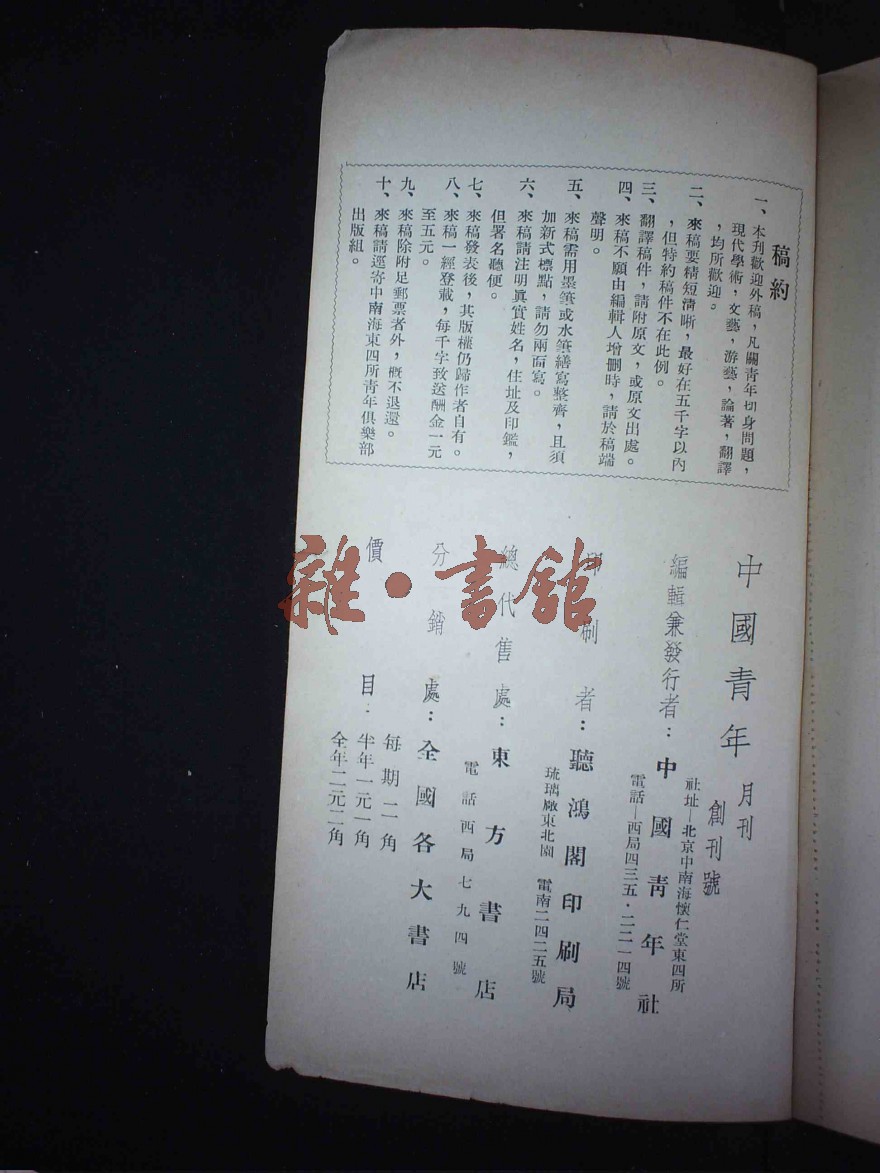 稿約
一、本刊歡迎外稿，凡關青年切身問題，
現代學術，文藝，游藝，論著，翻譯
，均所歡迎。
二、來稿要精短清晰，最好在五千字以內
，但特約稿件不在此例。
三、翻譯稿件，請附原文，或原文出處。
四、來稿不願由編輯人增刪時，請於稿端
聲明。
五、來稿需用墨筆或水筆繕寫整齊，且須
加新式標點，請勿兩面寫。
六、來稿請注明眞實姓名，住址及印鑑，
但署名聽便。
七、來稿發表後，其版權仍歸作者自有。
八、來稿一經登載，每千字致送酬金一元
至五元。
九、來稿除附足郵票者外，槪不退還。
十、來稿請逕寄中南海東四所青年俱樂部
出版組。
中國青年月刊
創刊號
社址—北京中南海懷仁堂東四所
編輯兼發行者：中國青年社
電話—西局四三五・二二一四號
印刷者：聽鴻閣印刷局
琉璃廠東北園 電南二四二五號
總代售處：東方書店
電話西局七九四號
分銷處：全國各大書店
價目：每期二角
半年一元一角
全年二元二角
雜・書館